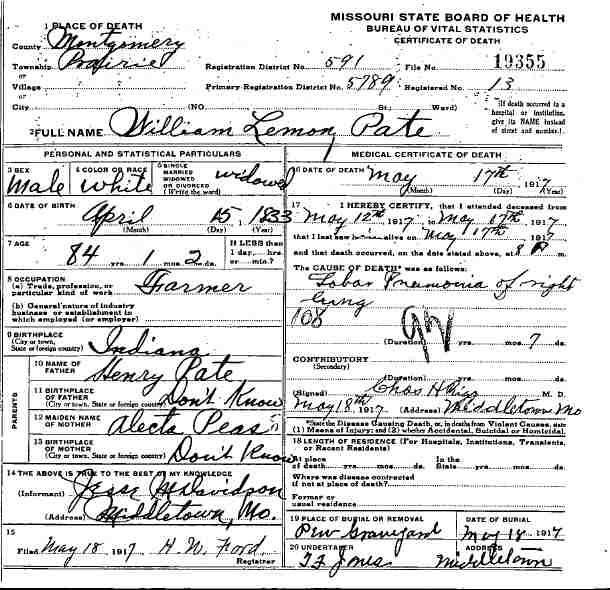 MISSOURI STATE BOARD OF HEALTH
BUREAU OF VITAL STATISTICS
CERTIFICATE OF DEATH
1 PLACE OF DEATH
County Montgomery
Township Prairie Registration District No. 591 File No. 19355
or
Village Primary Registration District No. 5789 Registered No. 13
or
City (NO. St.; Ward)
[If death occurred in a hospital or institution, give its NAME instead of street and number.]
2 FULL NAME William Lemon Pate
PERSONAL AND STATISTICAL PARTICULARS
3 SEX Male
4 COLOR OR RACE White
5 SINGLE MARRIED WIDOWED OR DIVORCED (Write the word) widowed
6 DATE OF BIRTH April 15 1833
(Month) (Day) (Year)
7 AGE 84 yrs. 1 mos. 2 ds.
If LESS than 1 day, hrs. or min.?
8 OCCUPATION
(a) Trade, profession, or particular kind of work Farmer
(b) General nature of industry business or establishment in which employed (or employer)
9 BIRTHPLACE
(City or town, State or foreign country) Indiana
PARENTS
10 NAME OF FATHER Henry Pate
11 BIRTHPLACE OF FATHER
(City or town, State or foreign country) Don't Know
12 MAIDEN NAME OF MOTHER Alecta Peas
13 BIRTHPLACE OF MOTHER
(City or town, State or foreign country) Don't Know
14 THE ABOVE IS TRUE TO THE BEST OF MY KNOWLEDGE
(Informant) Davidson
(Address) Middletown, Mo.
15
Filed May 18 1917 H. W. Ford
Registrar
MEDICAL CERTIFICATE OF DEATH
16 DATE OF DEATH May 17th 1917
(Month) (Day) (Year)
17 I HEREBY CERTIFY, that I attended deceased from
May 12th 1917, to May 17th 1917
that I last saw him alive on May 17th 1917
and that death occurred, on the date stated above, at 8 P m.
The CAUSE OF DEATH* was as follows:
Lobar Pneumonia of right
lung
108
(Duration) yrs. mos. 7 ds.
CONTRIBUTORY
(Secondary)
(Duration) yrs. mos. ds.
(Signed) Chas H M. D.
May 18th, 1917 (Address) Middletown Mo
*State the Disease Causing Death, or, in deaths from Violent Causes, state (1) Means of Injury; and (2) whether Accidental, Suicidal or Homicidal.
18 LENGTH OF RESIDENCE (For Hospitals, Institutions, Transients, or Recent Residents)
At place of death yrs. mos. ds. In the State yrs. mos. ds.
Where was disease contracted
if not at place of death?
Former or
usual residence
19 PLACE OF BURIAL OR REMOVAL
Graveyard
DATE OF BURIAL
May 18 1917
20 UNDERTAKER
Jones
ADDRESS
Middletown